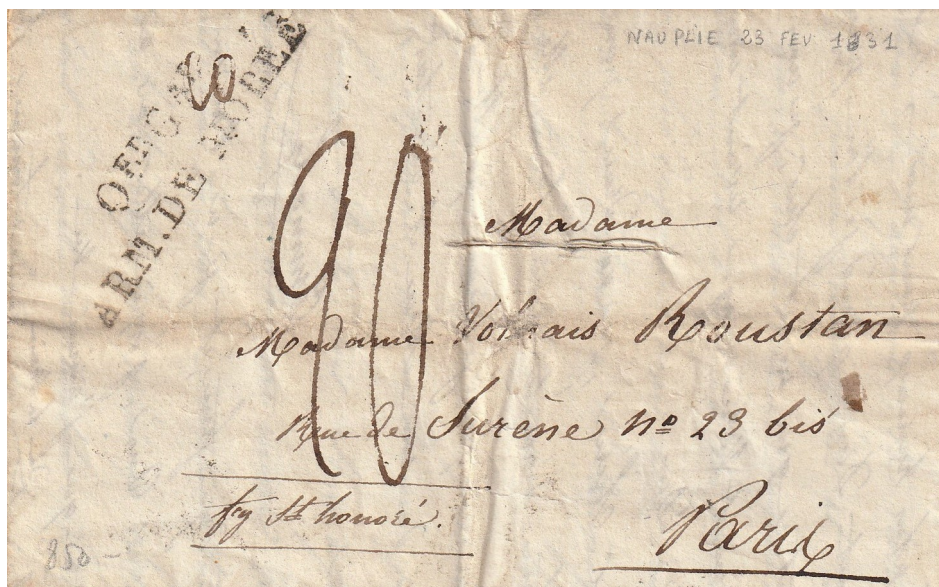 NAUPLIE 23 FEV 1831
20
ARM. DE MOREE
90
Madame
Madame Roustan
Rue de Surène nº 23 bis
fg St honoré.
Paris
850 -